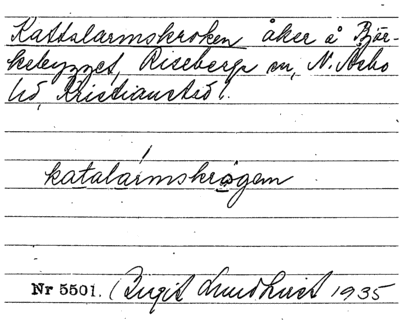 Kattalarmskroken åker å Björ-
kebygget, Riseberga sn, N. Åsbo
hd, Kristianstad l.
katalármskrǫgem
Nr 5501. Birgit Lundkvist 1935